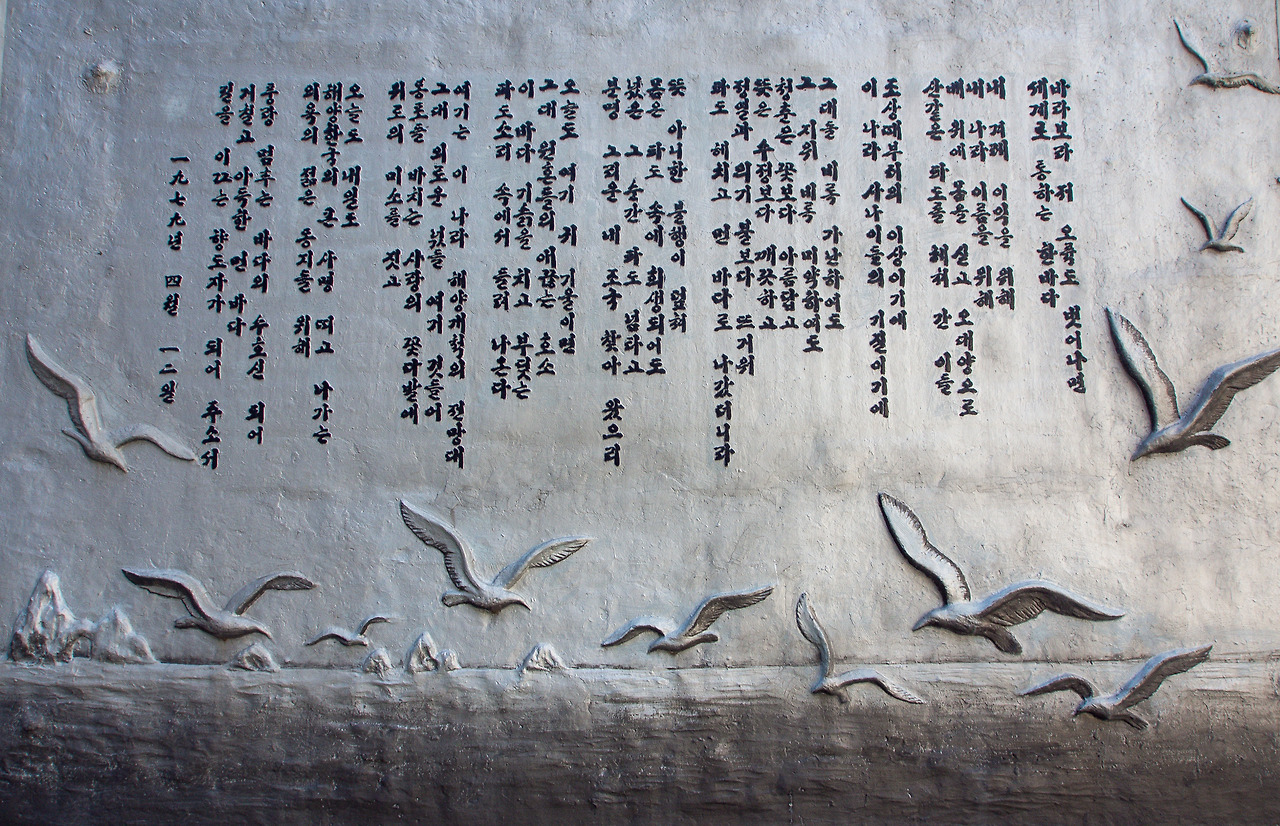 바라보라 저 오륙도 벗어나면
세계로 통하는 한바다
내 겨레 이익을 위해
내 나라 이름을 위해
배 위에 몸을 싣고 오대양으로
산같은 파도를 헤쳐 간 이들
조상때부터의 이상이기에
이 나라 사나이들의 기질이기에
그대들 비록 가난하여도
그 지위 비록 미약하여도
청춘은 꽃보다 아름답고
뜻은 수정보다 깨끗하고
정열과 의기 불보다 뜨거워
파도 헤치고 먼 바다로 나갔더니라
뜻 아니한 불행이 덮쳐
몸은 파도 속에 희생되어도
넋은 그 순간 파도 넘타고
분명 그리운 내 조국 찾아 왔으리
오늘도 여기 귀 기울이면
그대 원혼들의 애끊는 호소
이 바다 기슭을 치고 부딪는
파도소리 속에서 들려 나온다
여기는 이 나라 해양개척의 전망대
그대 외로운 넋들 여기 깃들어
동포들 바치는 사랑의 꽃다발에
위로의 미소를 짓고
오늘도 내일도
해양한국의 큰 사명 띠고 나가는
의욕의 젊은 동지들 위해
풍랑 멈추는 바다의 수호신 되어
거칠고 아득한 먼 바다
길을 이끄는 향도자가 되어 주소서
一九七九년 四월 一二일